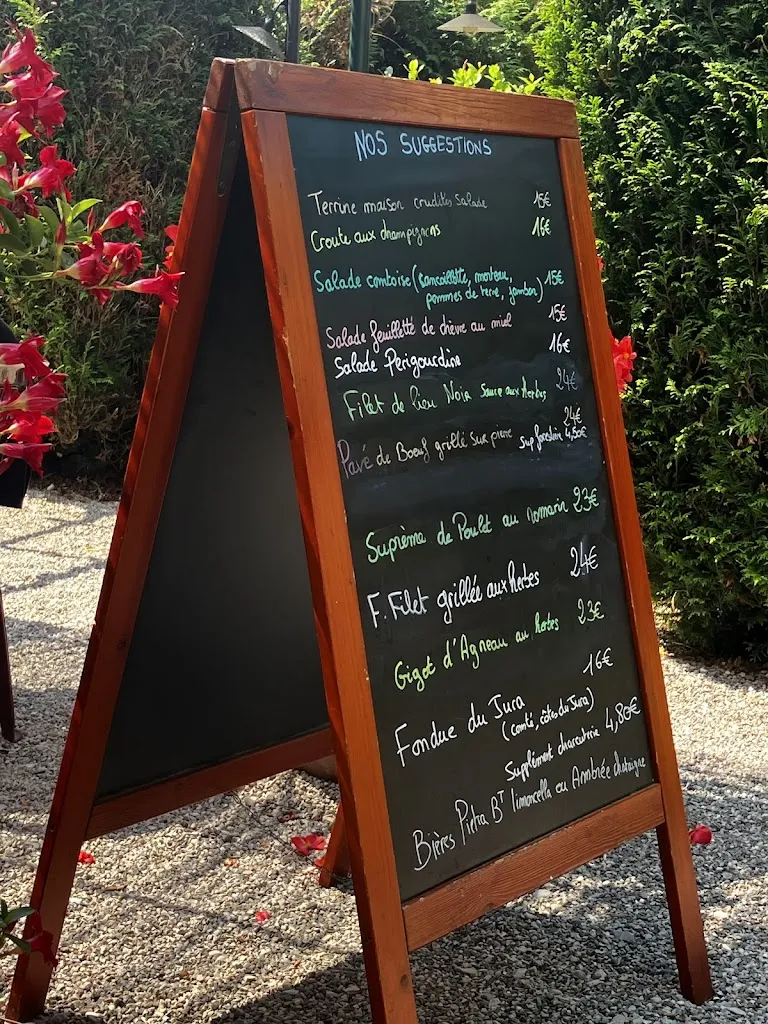 NOS SUGGESTIONS
Terrine maison crudités Salade 15€
Croute aux champignons 16€
Salade comtoise (cancoillotte, morteau, 15€
pommes de terre, jambon)
Salade feuilletté de chèvre au miel 15€
Salade Périgourdine 16€
Filet de lieu Noir Sauce aux Herbes 24€
Pavé de Boeuf grillé sur pierre 24€
sup forestière 4,50€
Suprême de Poulet au romarin 23€
F. Filet grillée aux herbes 24€
Gigot d'Agneau au herbes 23€
Fondue du Jura 16€
(comté, côtes du Jura)
Supplément charcuterie 4,80€
Bières Pietra BT limoncella ou Ambrée chataigne